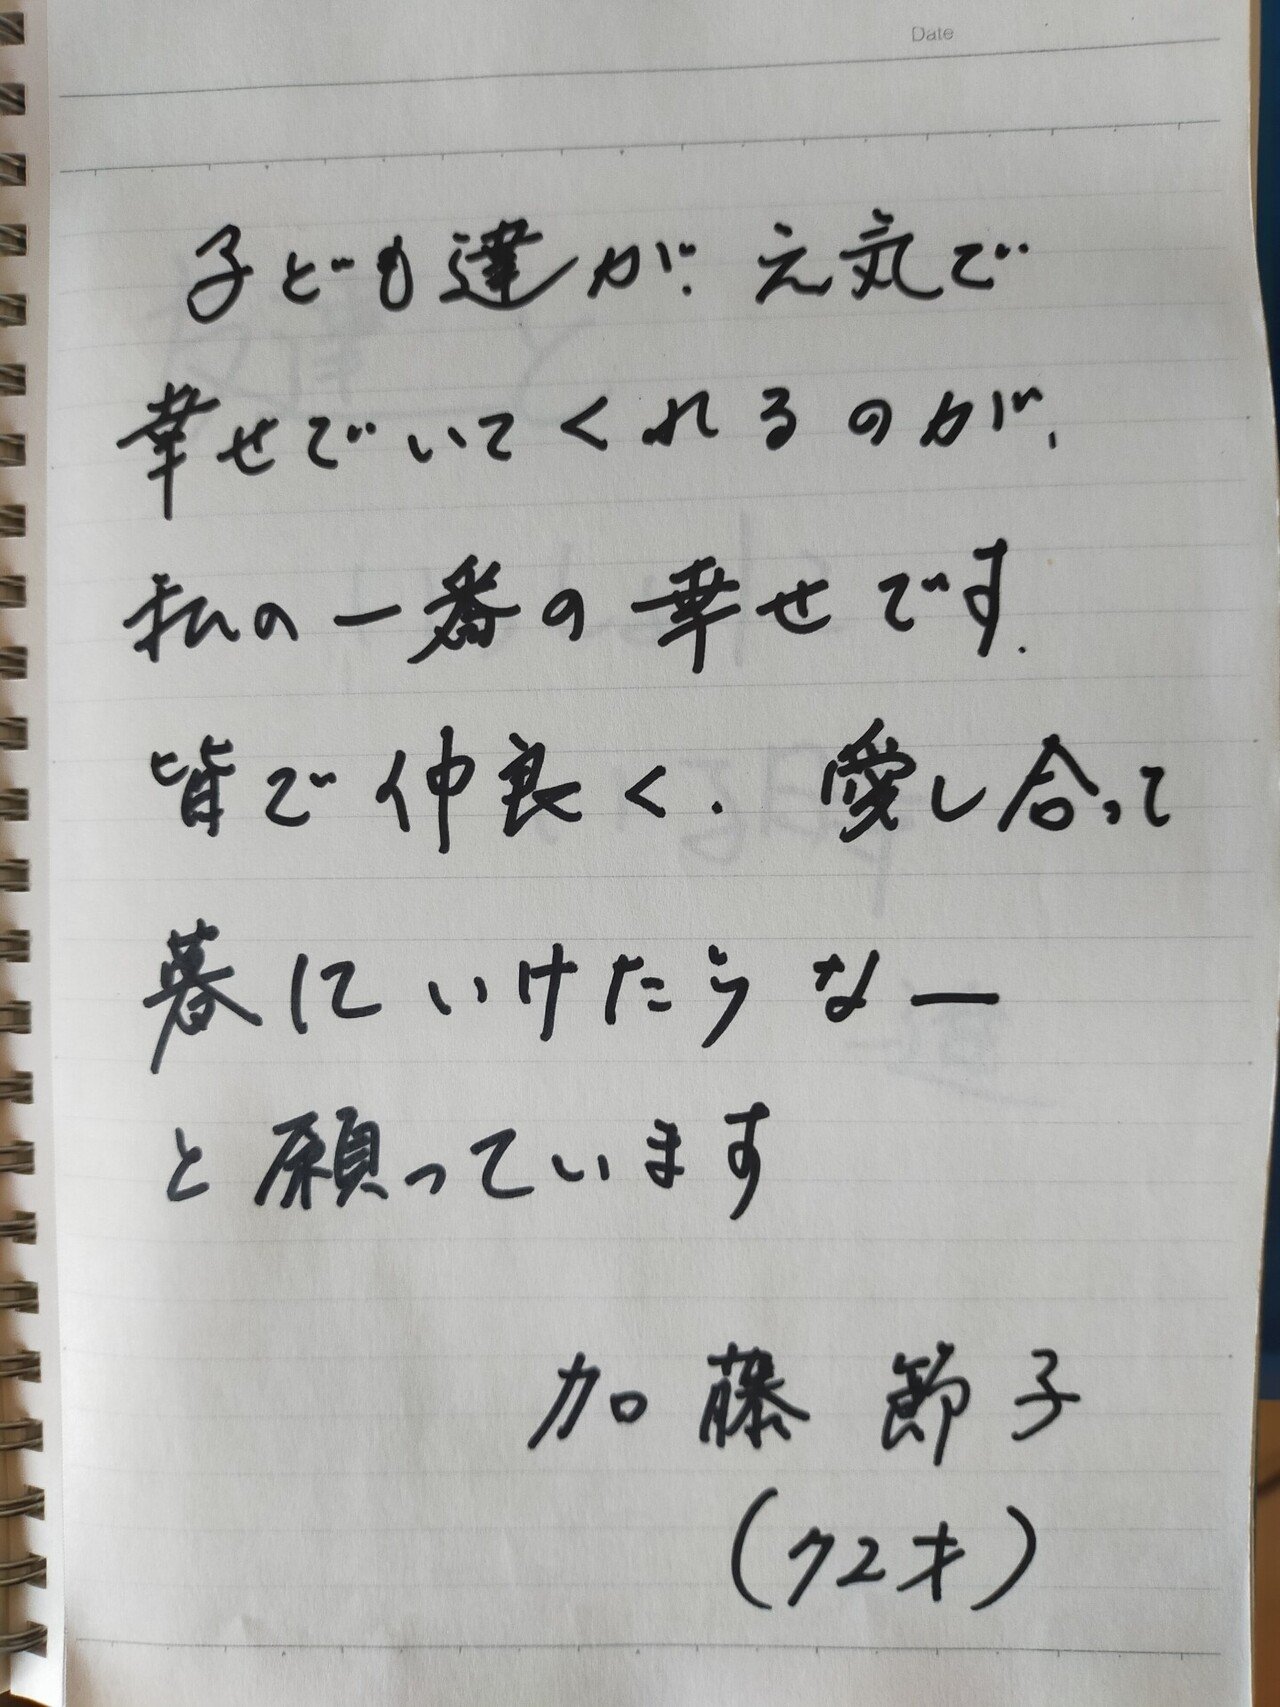 Date
子ども達が、元気で
幸せでいてくれるのが、
私の一番の幸せです.
皆で仲良く、愛し合って
暮にいけたらなー
と願っています
加藤 節子
(72才)